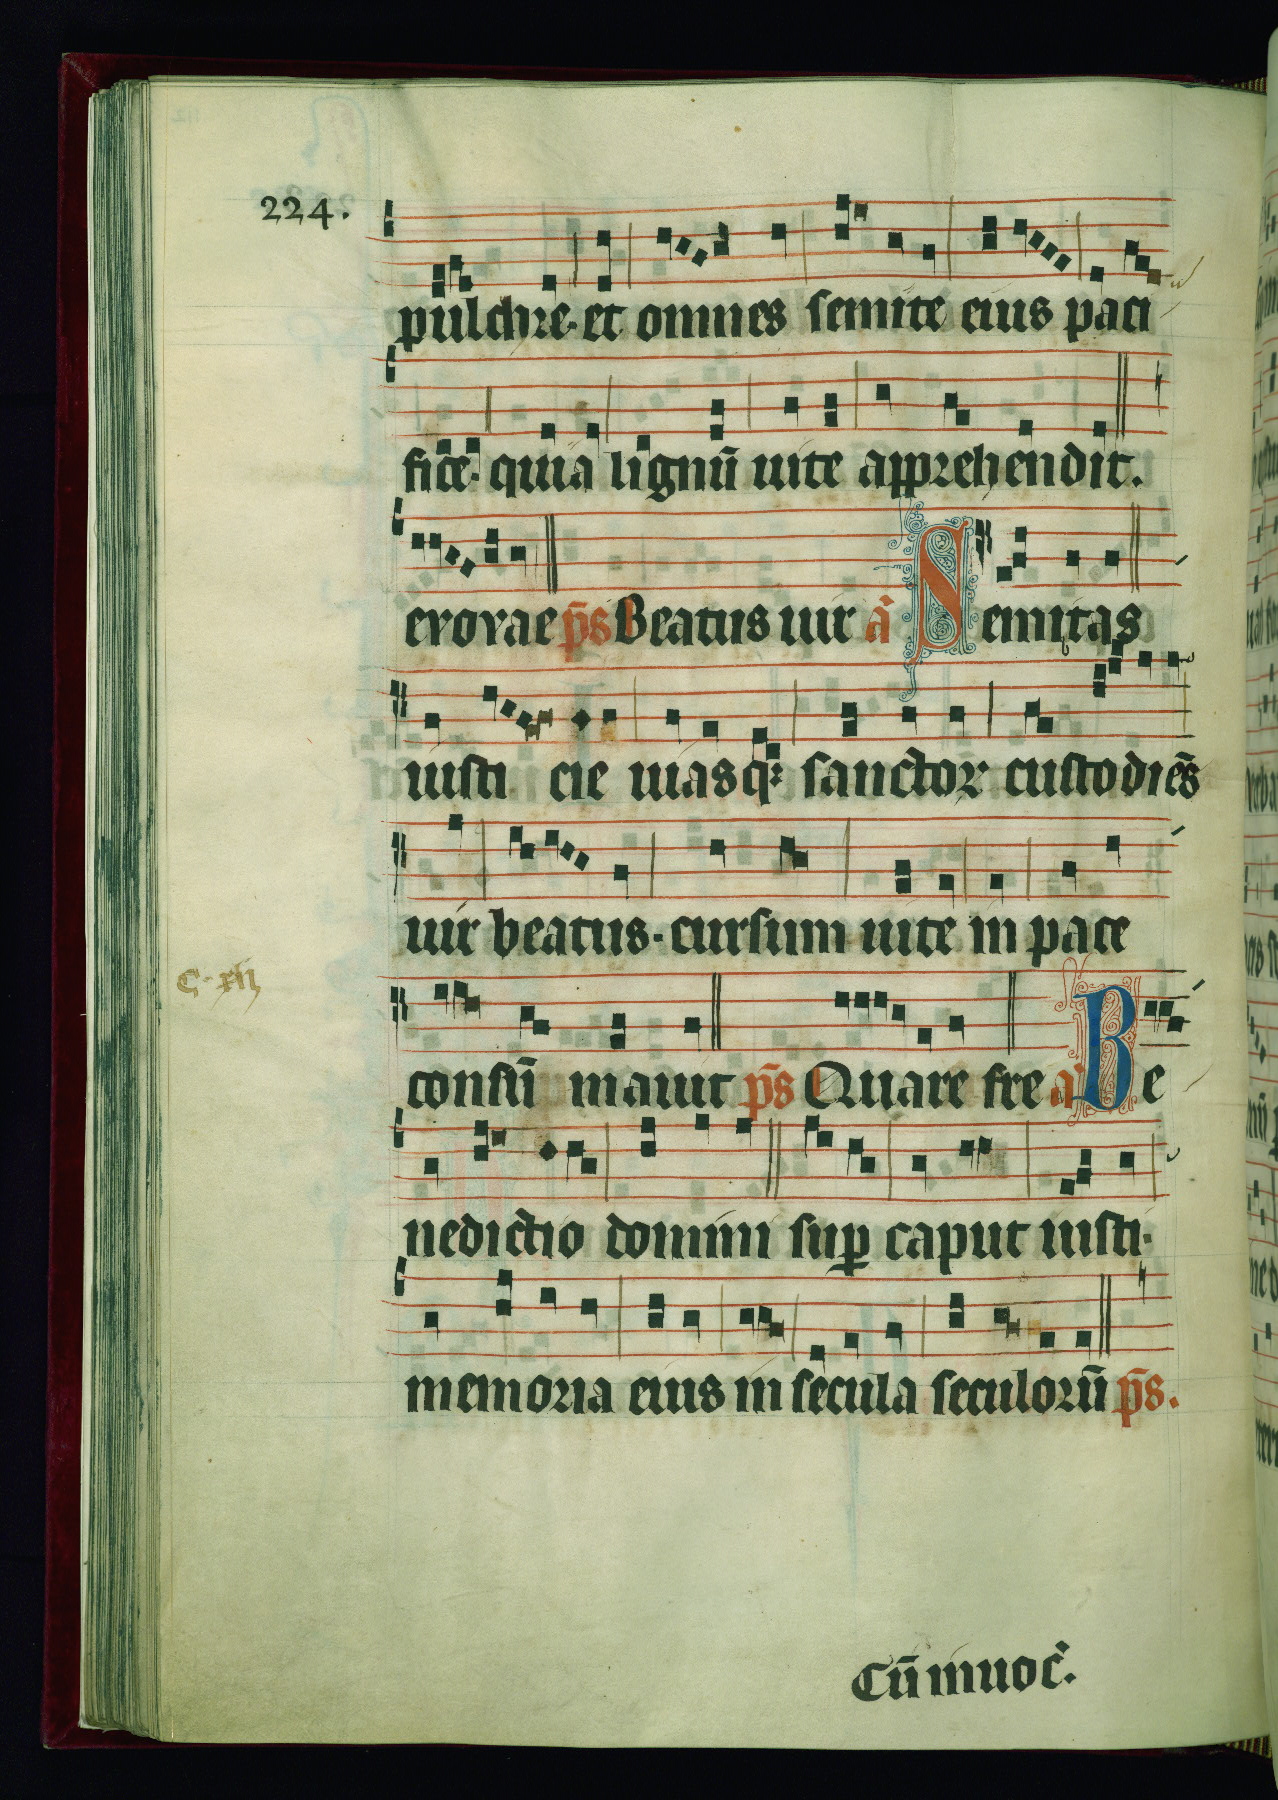 224.
pulchre· et omnes semite eius paci
fice· quia lignū uite apprehendit.
evovae p̄s Beatus uir a᷑ Semitas
iusticie uiasq; sanctor custodiēs
uir beatus· cursum uite in pace
consū mauit p̄s Quare fre a᷑ Be
nedictio domini sup caput iusti·
memoria eius in secula seculorū p̄s.
Cū inuoc᷑.